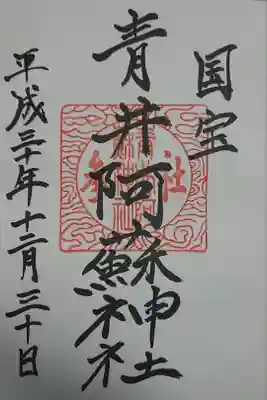 国宝
青井阿蘇神社
平成三十年十二月三十日